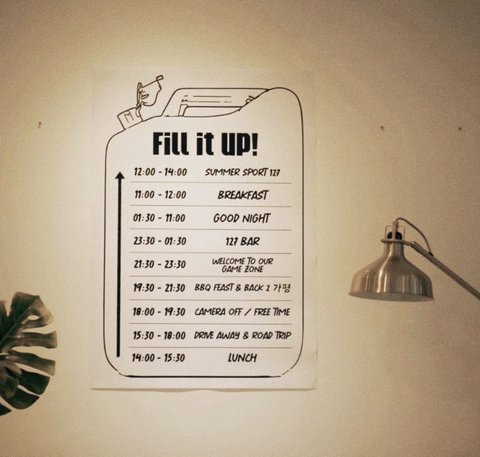 Fill it UP!
12:00 - 14:00 SUMMER SPORT 127
11:00 - 12:00 BREAKFAST
01:30 - 11:00 GOOD NIGHT
23:30 - 01:30 127 BAR
21:30 - 23:30 WELCOME TO OUR
GAME ZONE
19:30 - 21:30 BBQ FEAST & BACK 2 가평
18:00 - 19:30 CAMERA OFF / FREE TIME
15:30 - 18:00 DRIVE AWAY & ROAD TRIP
14:00 - 15:30 LUNCH